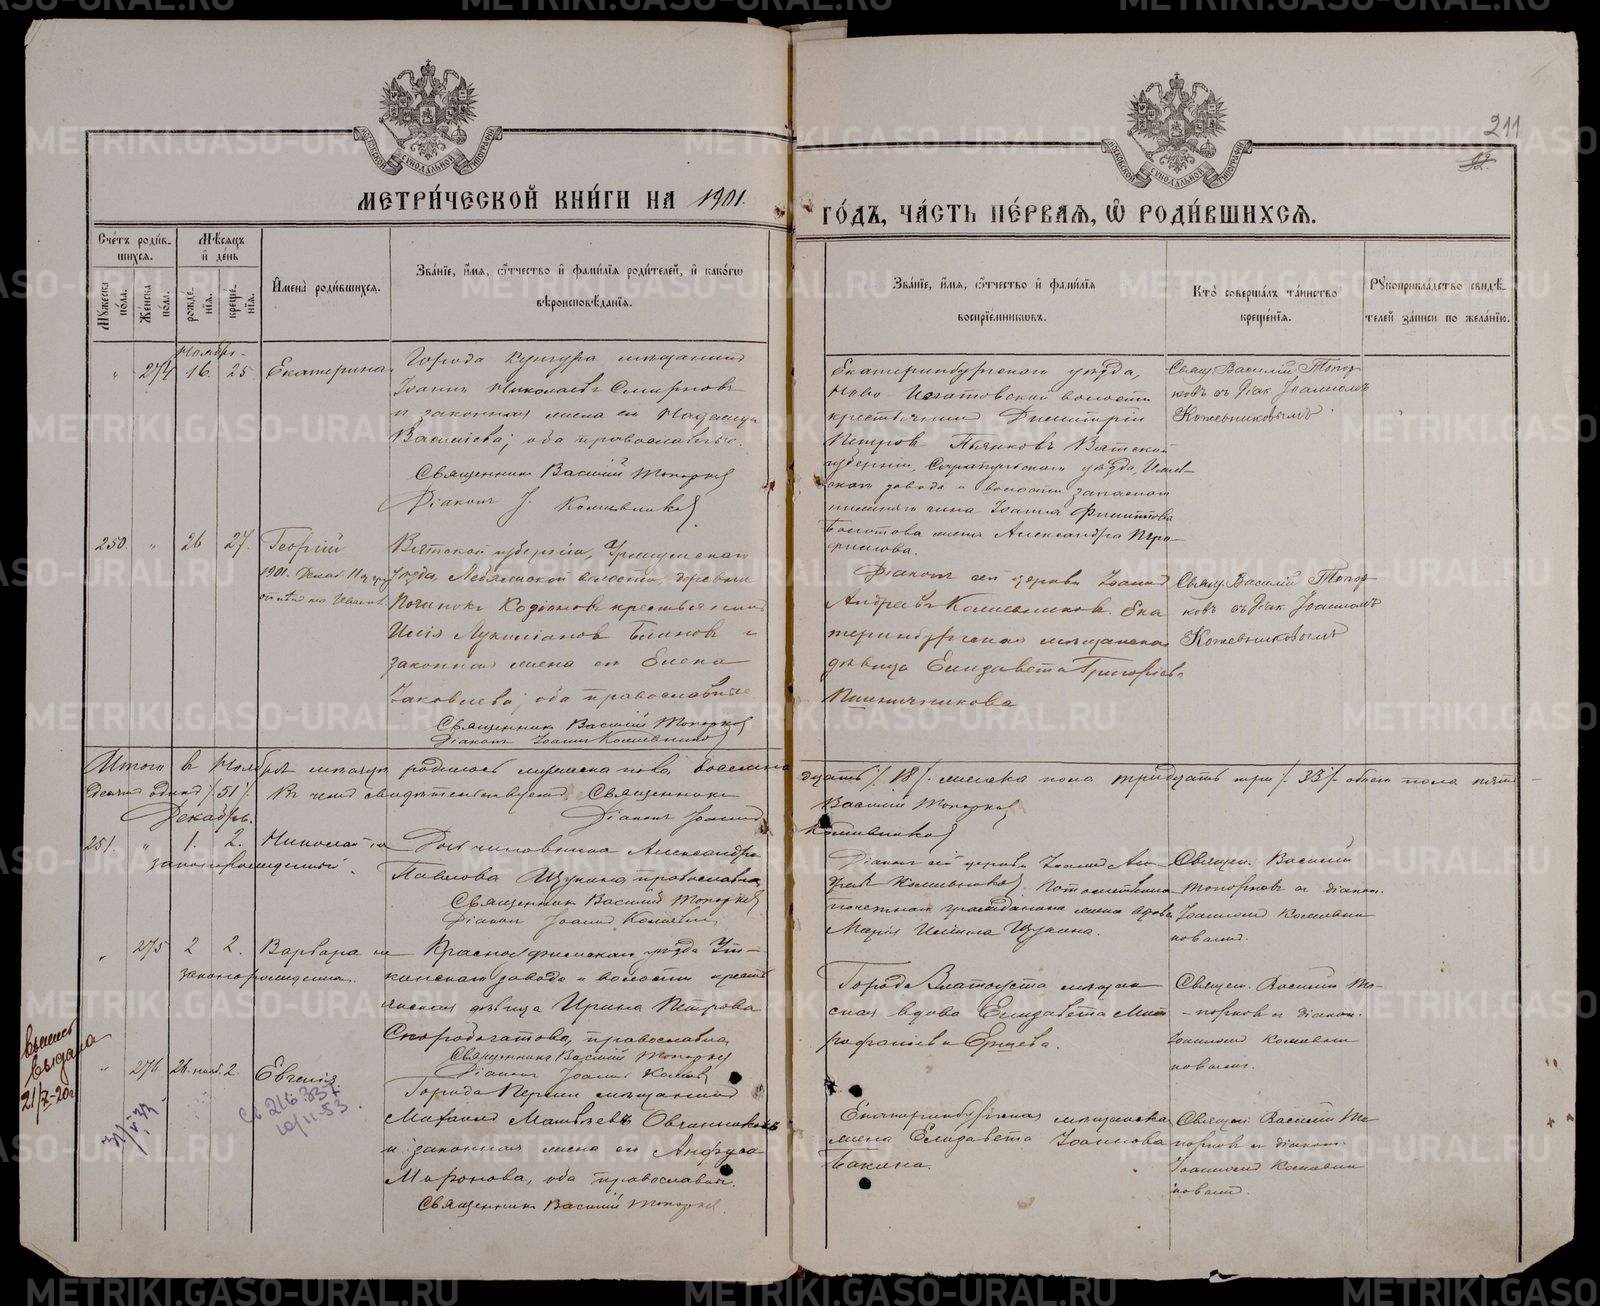 211
МЕТРИ́ЧЕСКОЙ КНИ́ГИ НА 1901.
ГО́ДЪ, ЧА́СТЬ ПЕ́РВАЯ, Ѡ РОДИ́ВШИХСЯ.
Сче́тъ роди́вшихся.
Мѣ́сяцъ и де́нь
Мꙋжеска по́ла.
Же́нска по́ла.
рожде́нїя.
креще́нїя.
И҆мена̀ роди́вшихся.
Зва́нїе, и҆́мя, ѻ҆́тчество и҆ фами́лїя роди́телей, и҆ како́гѡ
вѣроисповѣ́данїя.
Зва́нїе, и҆́мя, ѻ҆́тчество и҆ фами́лїя
воспрїе́мниковъ.
Кто̀ соверша́лъ та́инство
креще́нїя.
Рꙋкоприкла́дство свидѣ́
телей за́писи по жела́нїю.
Ноябрь
" 274 16. 25 Екатерина
Города Кунгура мѣщанинъ
Іоаннъ Николаевъ Смирновъ
и законная жена его Надежда
Васильева; оба православные.
Священникъ Василій Топорковъ
Діаконъ І. Кожевниковъ
Екатеринбургскаго уѣзда,
волости
крестьянинъ Димитрій
Петровъ Пьянковъ Вятской
губерніи, Сарапульскаго уѣзда,
скаго завода и волости запаснаго
чина Іоанна Филиппова
жена Александра
Свящ. Василій Топор
ковъ съ діак. Іоанномъ
Кожевниковымъ.
250. " 26 27. Георгій
Вятской губерніи, Уржумскаго
уѣзда, Лебяжской волости, деревни
Починокъ крестьянинъ
Блиновъ и
законная жена его Елена
Іаковлева; оба православные
Священникъ Василій Топорковъ
Діаконъ Іоаннъ Кожевниковъ
Діаконъ сей церкви Іоаннъ
Андреевъ Кожевниковъ. Ека
теринбургская мѣщанская
дѣвица Елизавета Григорьева
Пшеничникова
Свящ. Василій Топор
ковъ съ діак. Іоанномъ
Кожевниковымъ
Итого въ Ноябрѣ мѣсяцѣ родилось мужеска пола восемна
дцать /18/. женска пола тридцать три /33/. обоего пола пять
десятъ одинъ /51/. Въ чемъ свидѣтельствуемъ: Священникъ
Василій Топорковъ
Діаконъ Іоаннъ
Кожевниковъ
Декабрь.
251. " 1. 2. Николай не
законнорожденный.
Дочь чиновника Александра
Павлова Щукина православная
Священникъ Василій Топорковъ
Діаконъ Іоаннъ Кожевн.
Діаконъ сей церкви Іоаннъ Ан
дреевъ Кожевниковъ. Потомственнаго
почетнаго гражданина жена вдова
Марія Щукина.
Священ. Василій
Топорковъ съ діакон.
Іоанномъ Кожевни
ковымъ.
" 275 2 2. Варвара не
законнорожденная.
Красноуфимскаго уѣзда Ут
кинскаго завода и волости кресть
янская дѣвица Ирина Петрова
Скоробогатова, православная
Священникъ Василій Топорковъ
Діаконъ Іоаннъ Кожев.
Города Златоуста мѣщан
ская вдова Елизавета Мит
рофанова Ершева.
Священ. Василій То
порковъ съ діакон.
Іоанномъ Кожевни
ковымъ.
" 276 26. нояб. 2. Евгенія.
Города Перми мѣщанинъ
Михаилъ Матвѣевъ Овчинниковъ
и законная жена его Анфуса
Миронова, оба православные.
Священникъ Василій Топорковъ.
Екатеринбургская мѣщанская
жена Елизавета Іоаннова
Бакина.
Священ. Василій То
порковъ съ діакон.
Іоанномъ Кожевни
ковымъ.
выдана
21/X-20г
METRIKI.GASO-URAL.RU